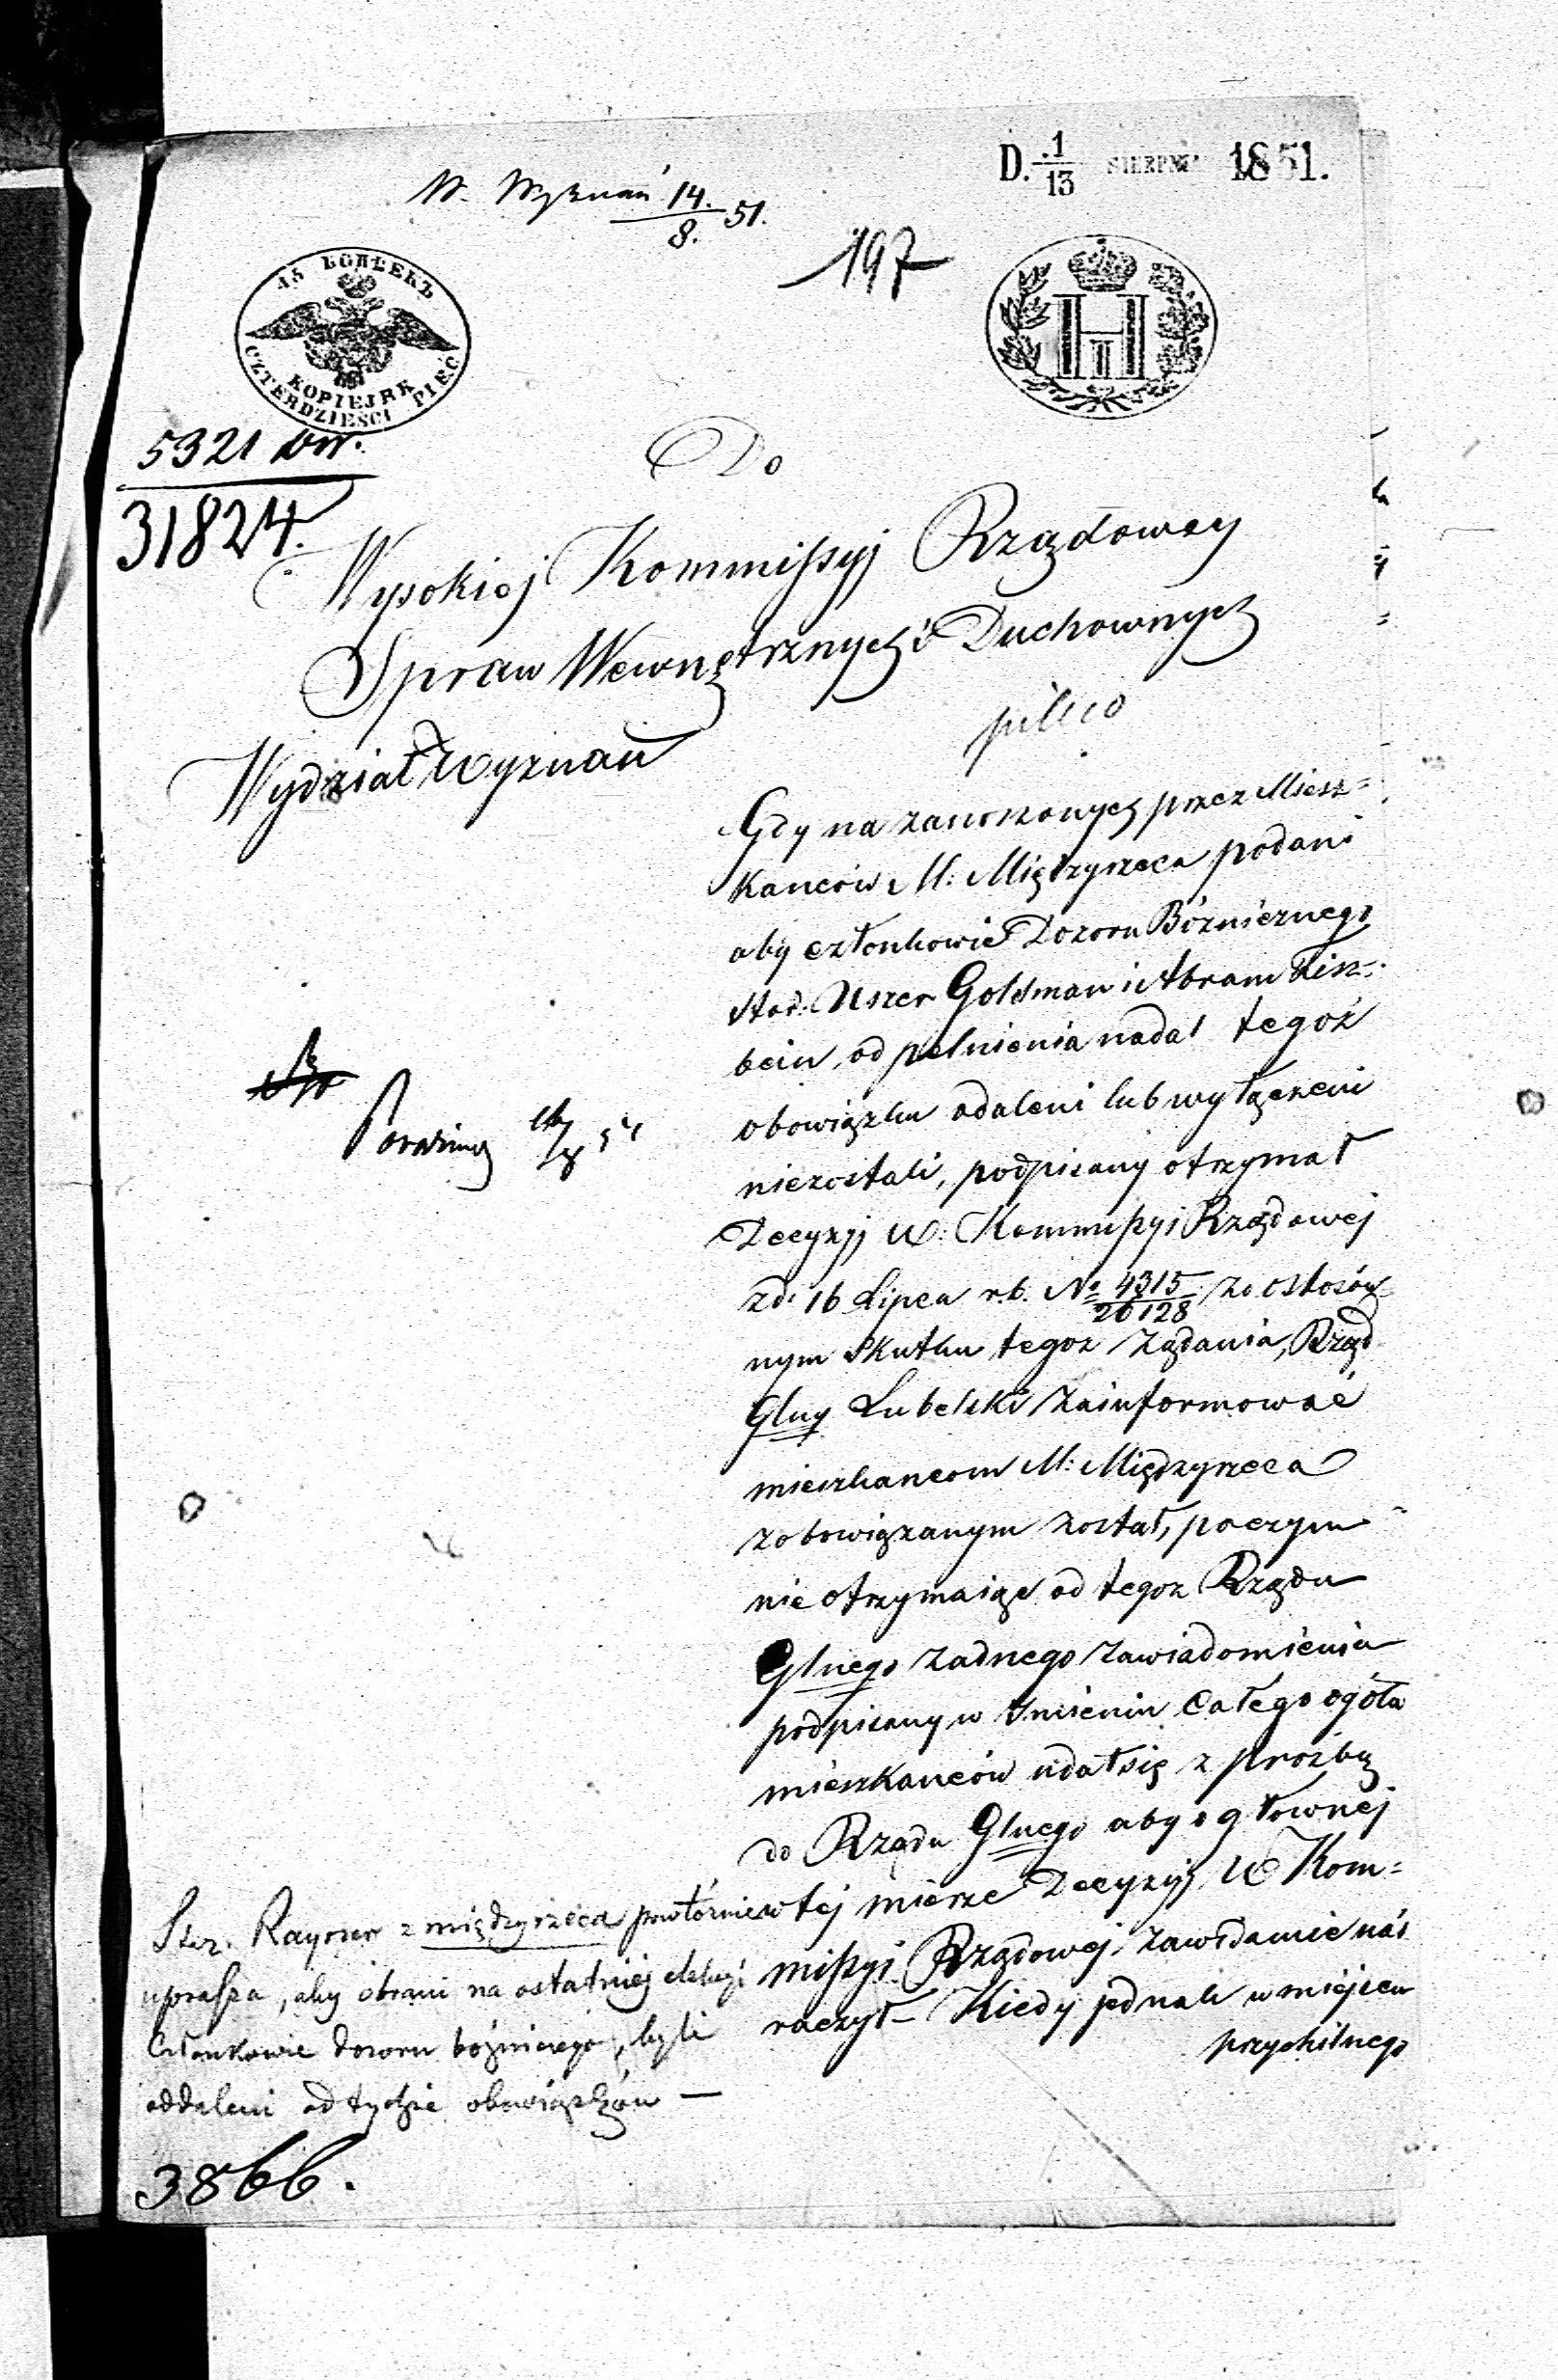 D. 1/13 SIERPNIA 1851.
W. Wyznań 14./8. 51.
197
45 КОПѢЕКЪ
KOPIEJEK
CZTERDZIEŚCI PIĘĆ
H I
5321 wr.
31824.
Do
Wysokiej Kommissyj Rządowey
Spraw Wewnętrznych i Duchownych
pilno
Wydział Wyznań
Gdy na zanoszonych przez Miesz=
kanców M: Międzyrzeca podani
aby członkowie Dozoru Bóżnicznego
Star: Uszer Goldman i Abram Fisz=
bein, od pełnienia nadal tegoż
obowiązku odaleni lub wyłączeni
niezostali, podpisany otrzymał
Decyzyj W: Kommissyi Rządowej
zd: 16 Lipca r.b. № 4315/26128 że ostosów=
nym skutku tegoz żądania, Rząd
Glny Lubelski zainformować
mieszkancom M: Międzyrzeca
zobowiązanym został, poczym
nie otrzymaiąc od tegoz Rządu
Glnego żadnego zawiadomienia
podpisany w Imieniu całego ogółu
mieszkanców udał się z prozbą
do Rządu Glnego aby o głownej
w tej mierze Decyzyj W Kom=
missyi Rządowej zawidamić nás
raczył – Kiedy jednak w miejscu
przychilnego
Star. Rayozer z Międzyrzeca powtórnie
uprasza, aby obrani na ostatniej elekcyi
Członkowie dozoru bóżniczego, byli
oddaleni od tychże obowiązków —
3866.